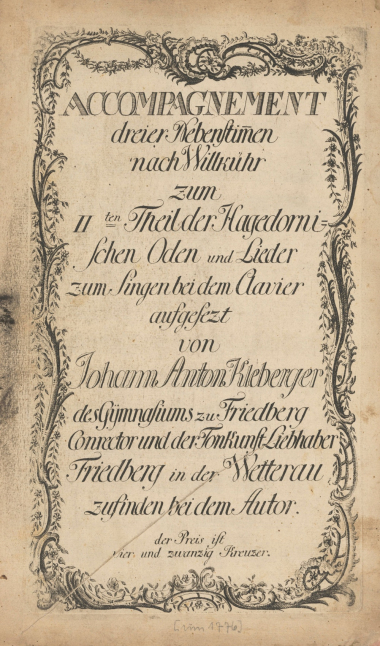 ACCOMPAGNEMENT
dreier Nebenstim̅en
nach Willkühr
zum
II ten Theil der Hagedorni-
schen Oden und Lieder
zum Singen bei dem Clavier
aufgesezt
von
Johann Anton Kleberger
des Gÿmnasiums zu Friedberg
Conrector und der Tonkunst Liebhaber
Friedberg in der Wetterau
zufinden bei dem Autor.
der Preis ist
vier und zwanzig Kreuzer.
[um 1776]